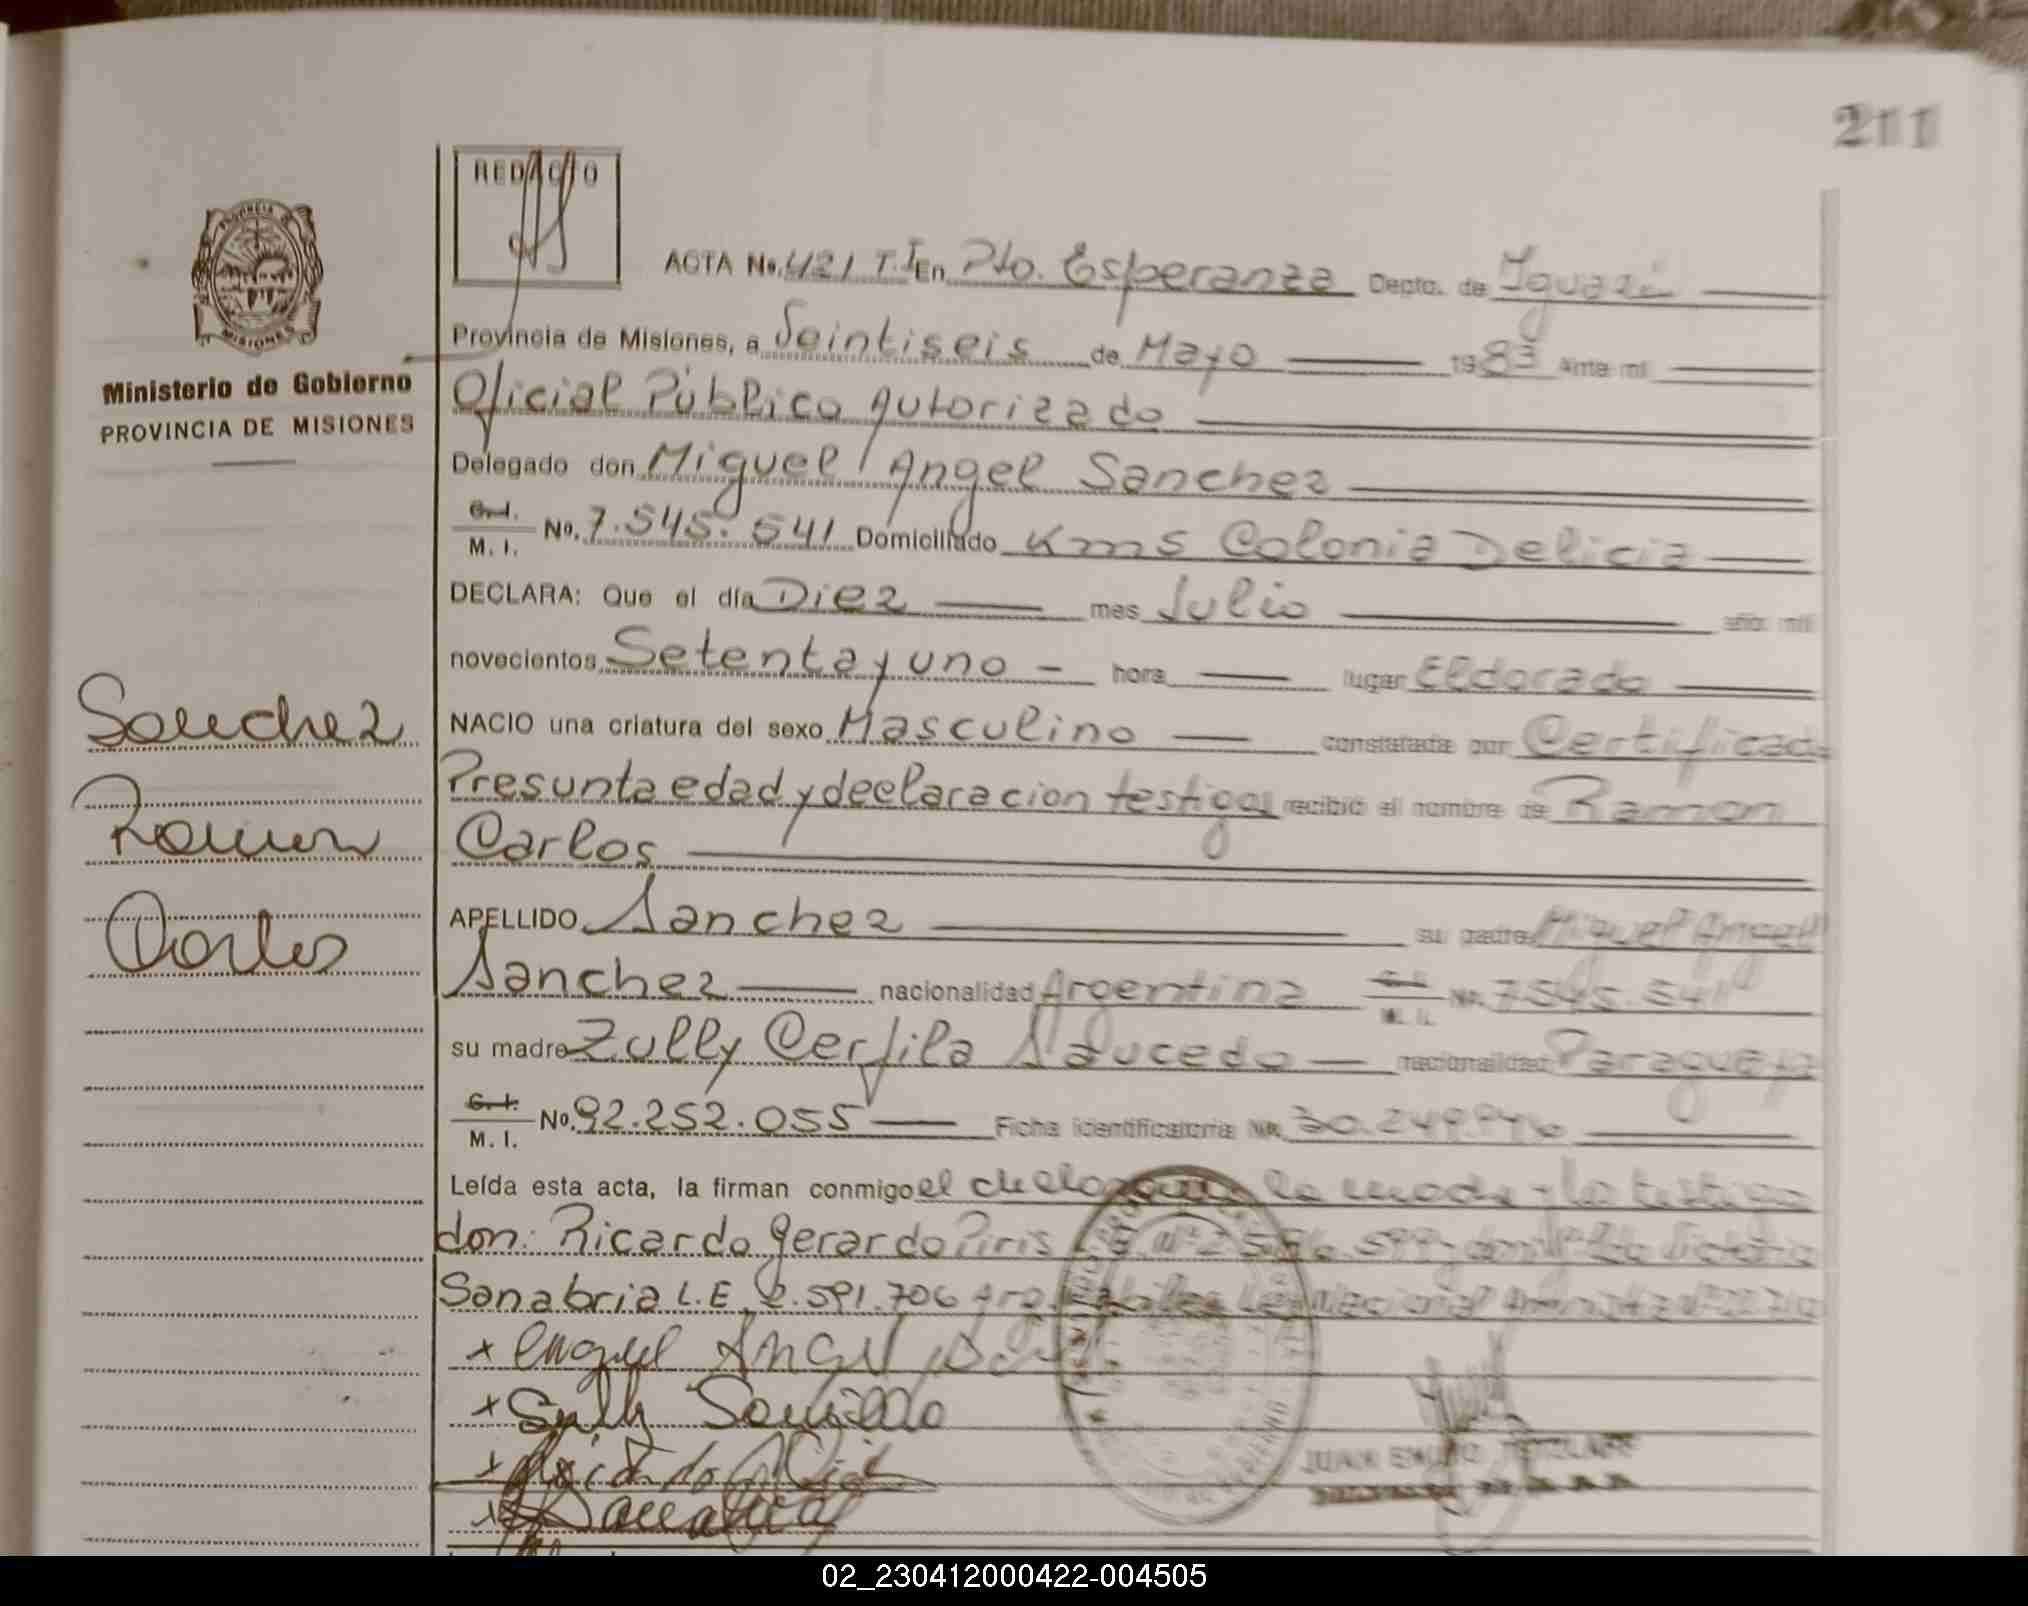 211
REDACTO
ACTA No. 421 T.I En Pto. Esperanza Depto. de Iguazú
Provincia de Misiones, a Veintiseis de Mayo 1983 Ante mi
Ministerio de Gobierno
PROVINCIA DE MISIONES
Oficial Público Autorizado
Delegado don Miguel Angel Sanchez
C.I. M. I. No. 7.545.541 Domiciliado Km5 Colonia Delicia
DECLARA: Que el día Diez mes Julio año mil
novecientos Setenta y uno hora lugar Eldorado
NACIO una criatura del sexo Masculino constatada por Certificado
Presunta edad y declaracion testigos recibió el nombre de Ramon
Carlos
Sanchez
Ramon
Carlos
APELLIDO Sanchez su padre Miguel Angel
Sanchez nacionalidad Argentina C.I. M. I. No. 7.545.541
su madre Zully Cerfila Saucedo nacionalidad Paraguaya
C.I. M. I. No. 92.252.055 Ficha identificatoria No. 30.249.946
Leída esta acta, la firman conmigo el la madre
don: Ricardo Gerardo Piris
Sanabria L.E. 2.591.706
+ Miguel Angel
+
+
+
JUAN EMILIO
02_230412000422-004505